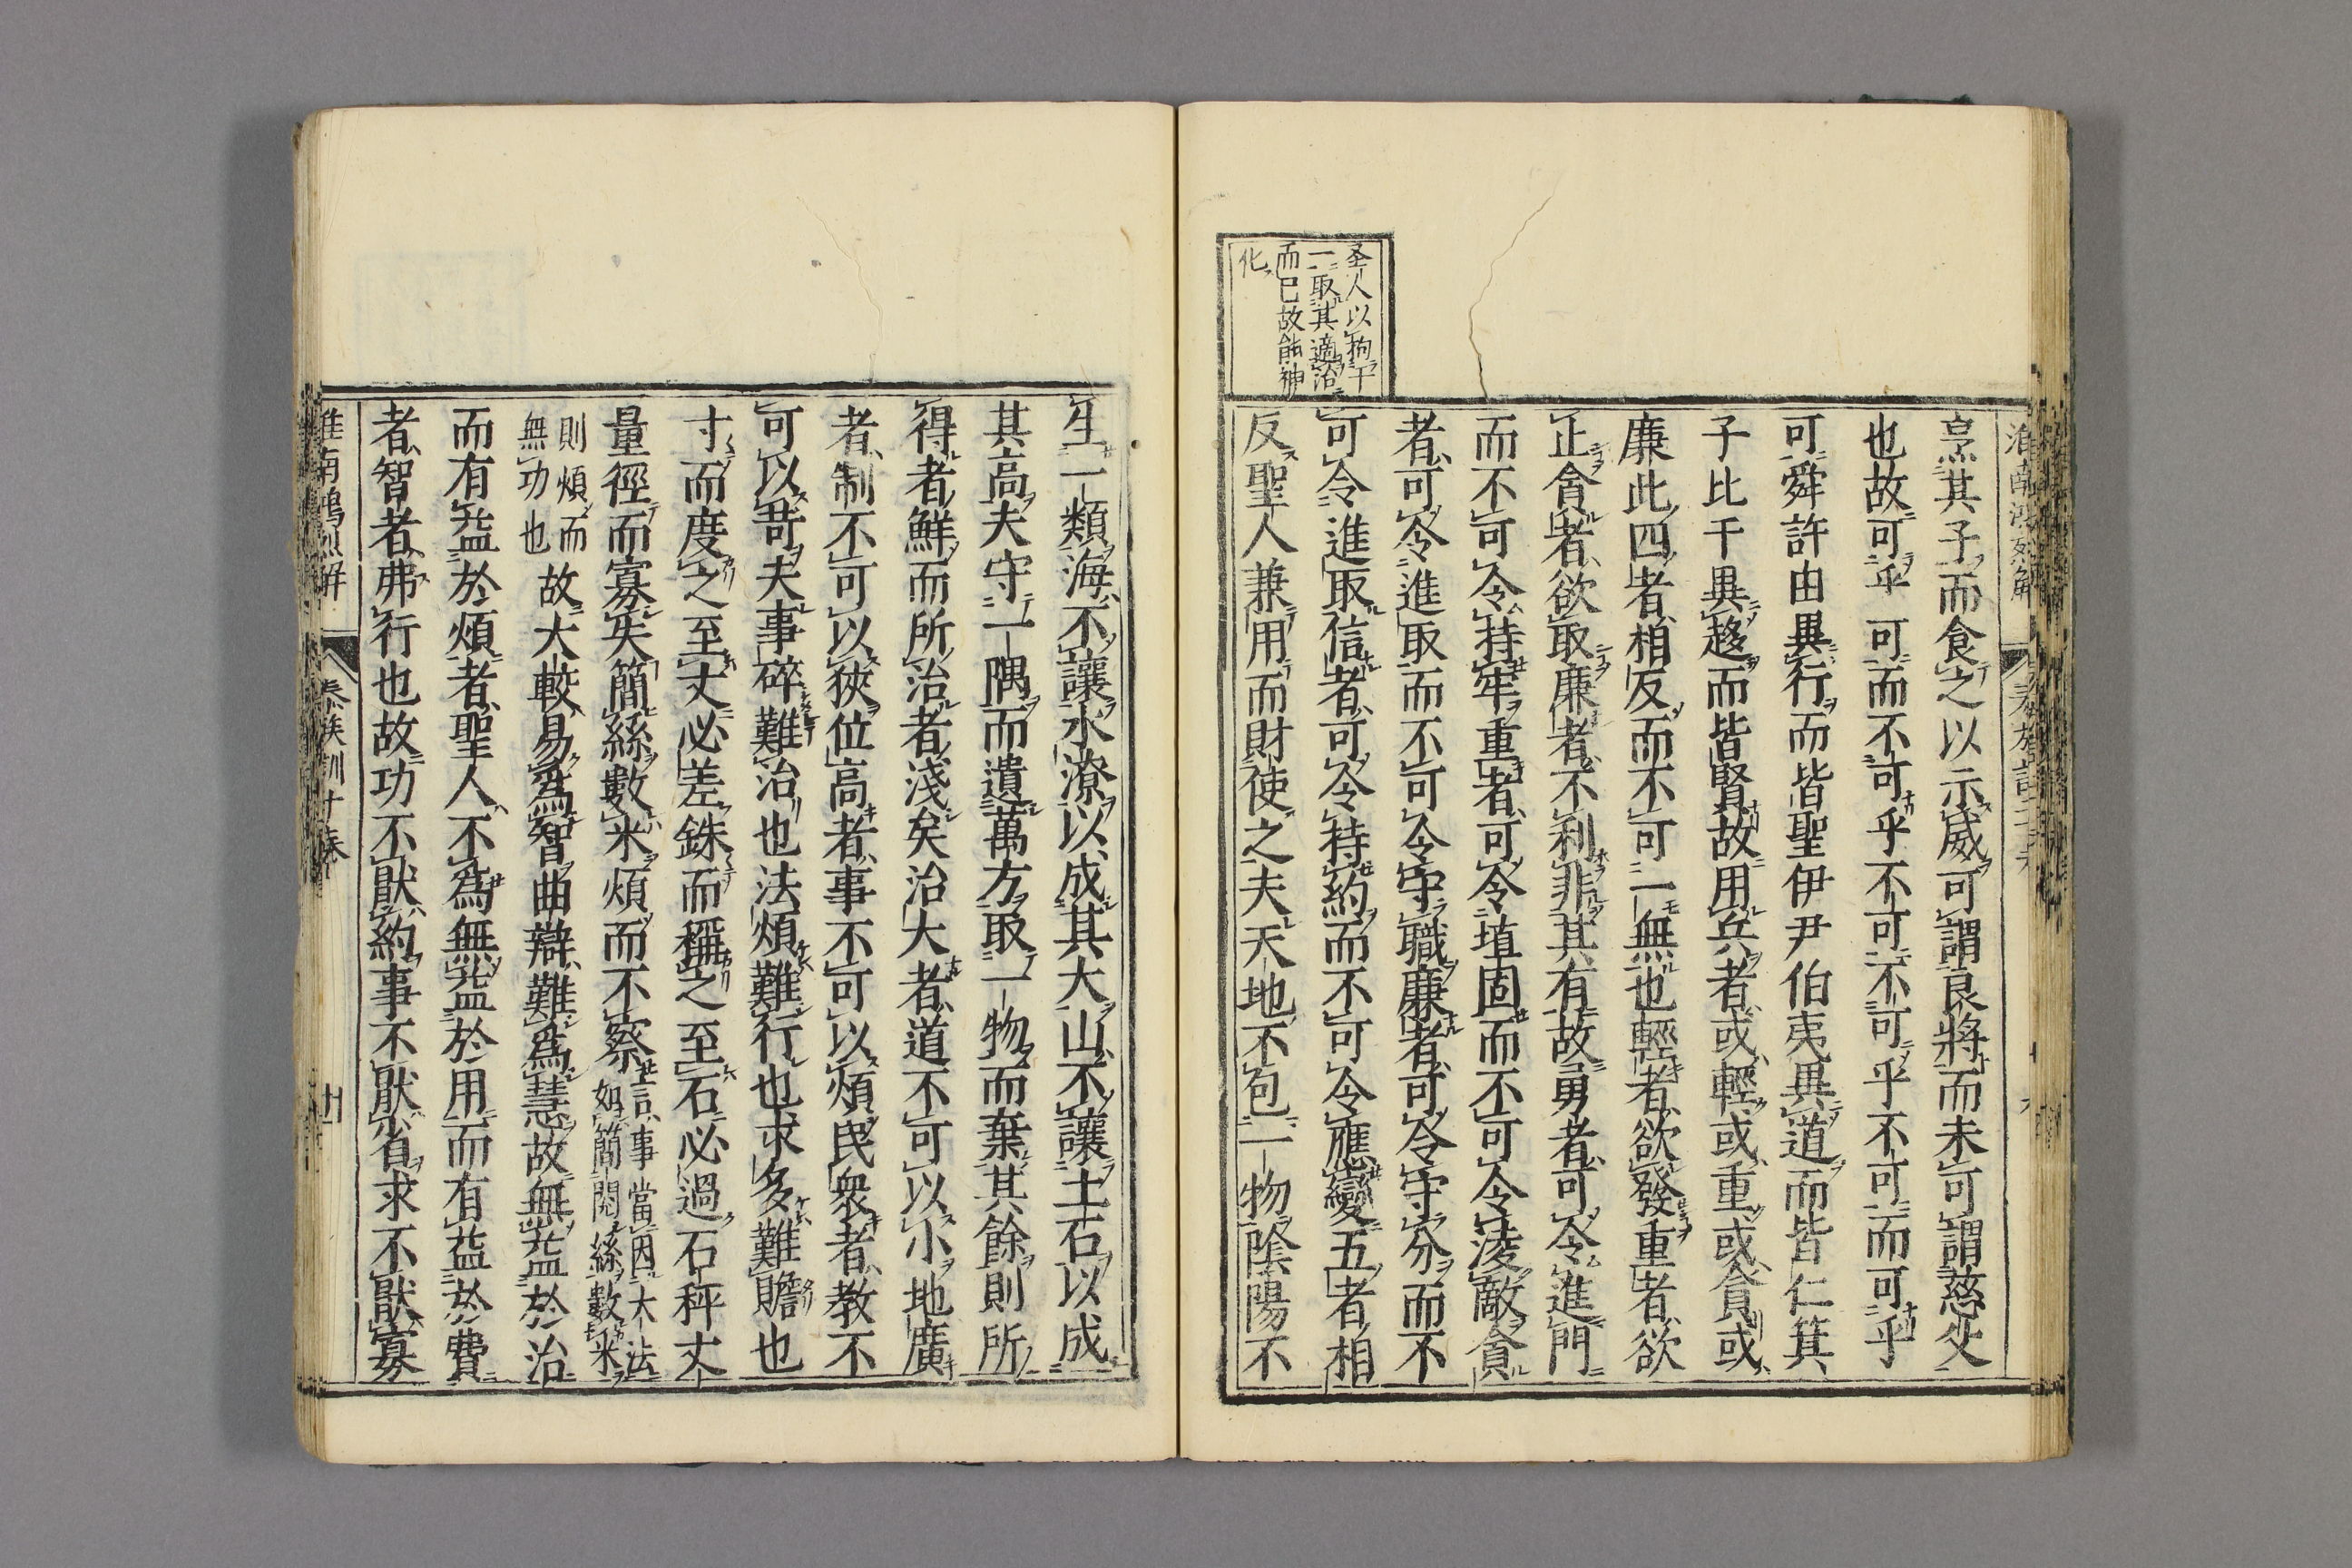 淮南鴻烈解
泰族訓二十卷
烹其子而食之以示威可謂良將而未可謂慈父
也故可乎可而不可乎不可不可乎不可而可乎
可舜許由異行而皆聖伊尹伯夷異道而皆仁箕
子比干異趨而皆賢故用兵者或輕或重或貪或
廉此四者相反而不可一無也輕者欲發重者欲
正貪者欲取廉者不利非其有故勇者可令進鬥
而不可令持牢重者可令埴固而不可令淩敵貪
者可令進取而不可令守職廉者可令守分而不
可令進取信者可令持約而不可令應變五者相
反聖人兼用而財使之夫天地不包一物陰陽不
圣人以拘干
一取其適治
而已故能神
化
生一類海不讓水潦以成其大山不讓土石以成
其高夫守一隅而遺萬方取一物而棄其餘則所
得者鮮而所治者淺矣治大者道不可以小地廣
者制不可以狹位高者事不可以煩民衆者教不
可以苛夫事碎難治也法煩難行也求多難贍也
寸而度之至丈必差銖而稱之至石必過石秤丈
量徑而寡失簡絲數米煩而不察言事當因大法
如簡閱絲數米
則煩而
無功也故大較易爲智曲辯難爲慧故無益於治
而有益於煩者聖人不爲無益於用而有益於費
者智者弗行也故功不厭約事不厭省求不厭寡
淮南鴻烈解
泰族訓十卷